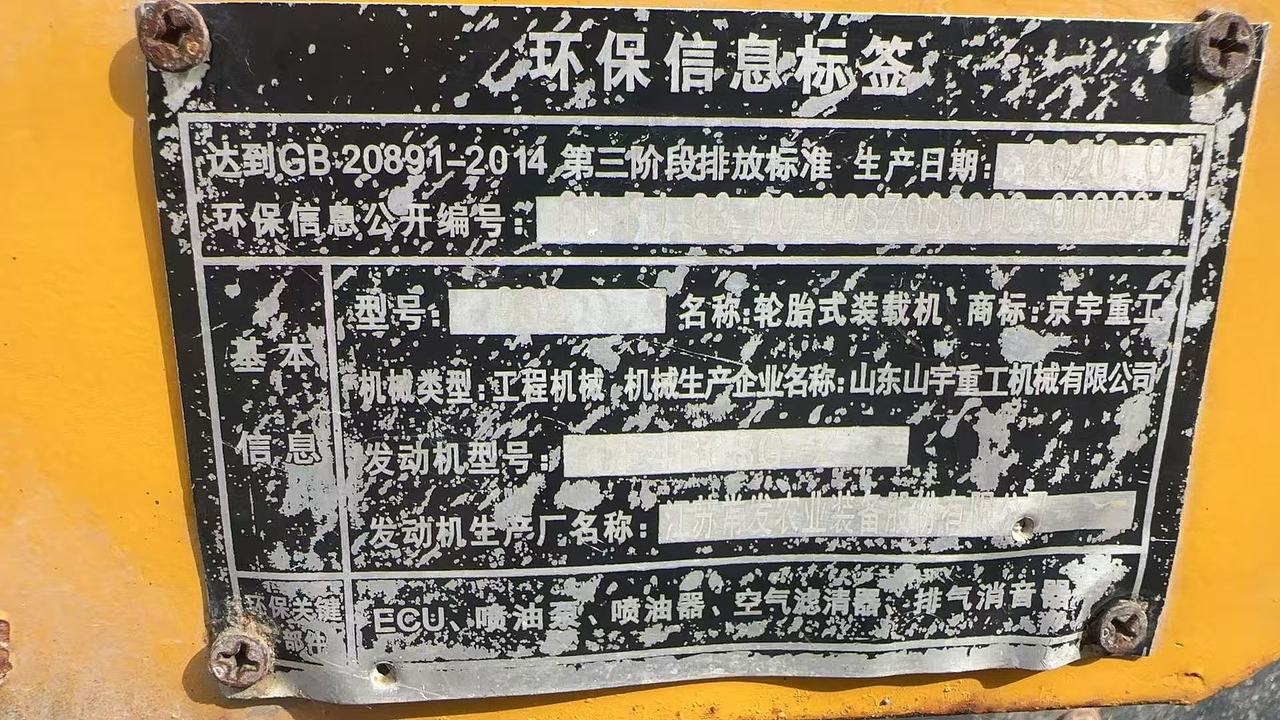 环保信息标签
达到GB 20891-2014 第三阶段排放标准 生产日期:
环保信息公开编号:
基本信息
型号: 名称:轮胎式装载机 商标:京宇重工
机械类型:工程机械 机械生产企业名称:山东山宇重工机械有限公司
发动机型号:
发动机生产厂名称:
环保关键部件
ECU、喷油泵、喷油器、空气滤清器、排气消音器